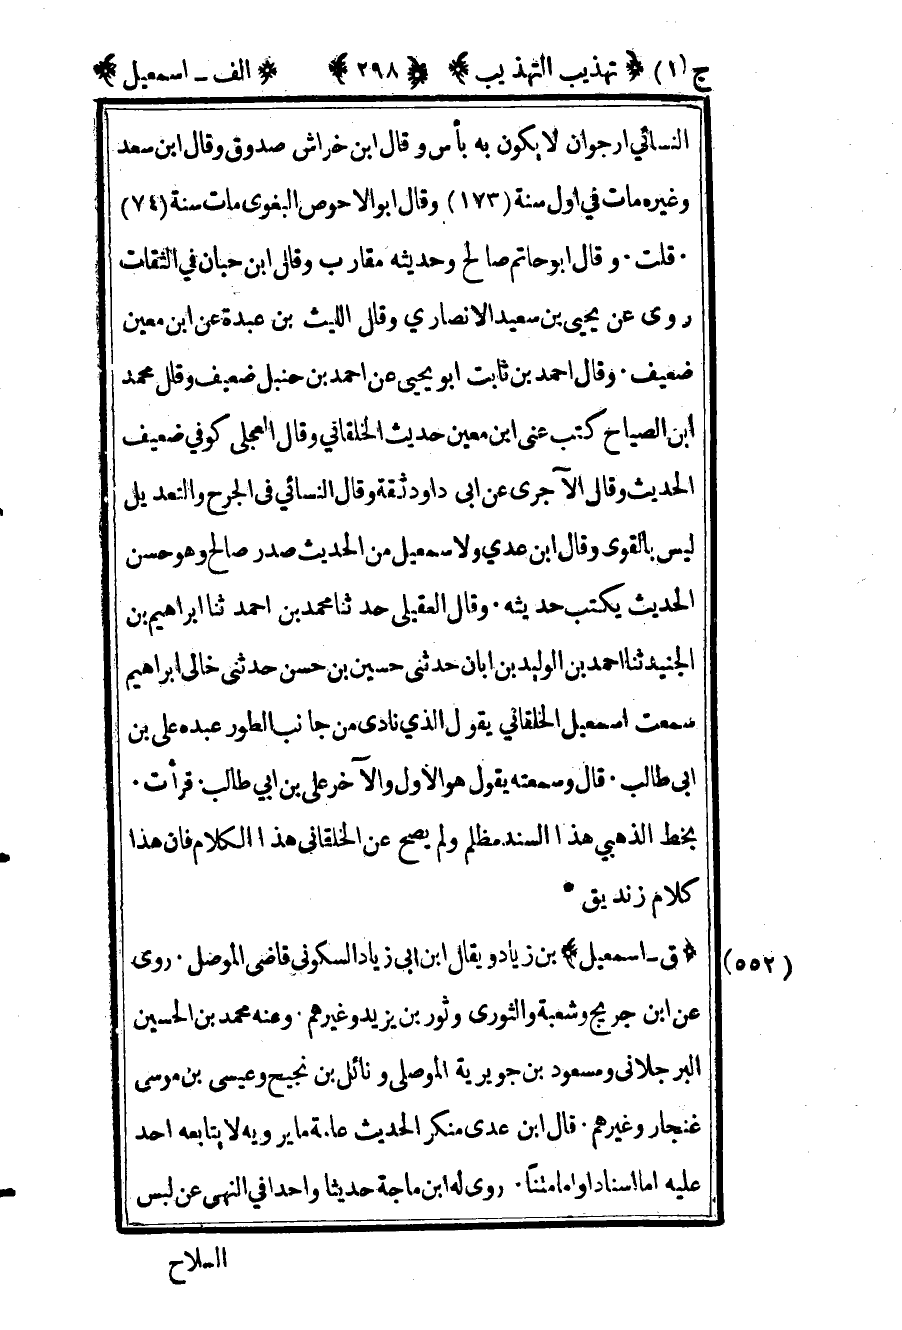 ج (١) ﴿ تهذيب التهذيب ﴾ ﴿ ٢٩٨ ﴾ ﴿ الف ـ اسمعيل ﴾
النسائي ارجوان لا يكون به بأس و قال ابن خراش صدوق وقال ابن سعد
وغيره مات في اول سنة (١٧٣) وقال ابو الاحوص البغوى مات سنة (٧٤)
· قلت · و قال ابو حاتم صالح وحديثه مقارب وقال ابن حبان في الثقات
روى عن يحيى بن سعيد الانصاري وقال الليث بن عبدة عن ابن معين
ضعيف · وقال احمد بن ثابت ابو يحيى عن احمد بن حنبل ضعيف وقال محمد
ابن الصباح كتب عنى ابن معين حديث الخلقاني وقال العجلى كوفي ضعيف
الحديث وقال الآجرى عن ابى داود ثقة وقال النسائي فى الجرح والتعديل
ليس بالقوى وقال ابن عدي ولاسمعيل من الحديث صدر صالح وهو حسن
الحديث يكتب حديثه · وقال العقيلى حدثنا محمد بن احمد ثنا ابراهيم بن
الجنيد ثنا احمد بن الوليد بن ابان حدثنى حسين بن حسن حدثنى خالى ابراهيم
سمعت اسمعيل الخلقاني يقول الذي نادى من جانب الطور عبده على بن
ابى طالب · قال وسمعته يقول هو الاول والآخر على بن ابي طالب · قرأت ·
بخط الذهبي هذا السند مظلم ولم يصح عن الخلقانى هذا الكلام فان هذا
كلام زنديق •
﴿ ق ـ اسمعيل ﴾ بن زياد ويقال ابن ابى زياد السكوني قاضى الموصل · روى (٥٥٢)
عن ابن جريج وشعبة والثورى وثور بن يزيد وغيرهم · وعنه محمد بن الحسين
البرجلانى ومسعود بن جويرية الموصلى و نائل بن نجيح وعيسى بن موسى
غنجار وغيرهم · قال ابن عدى منكر الحديث عامة ما يرويه لا يتابعه احد
عليه اما اسنادا واما متناً · روى له ابن ماجة حديثا واحدا في النهى عن لبس
السلاح